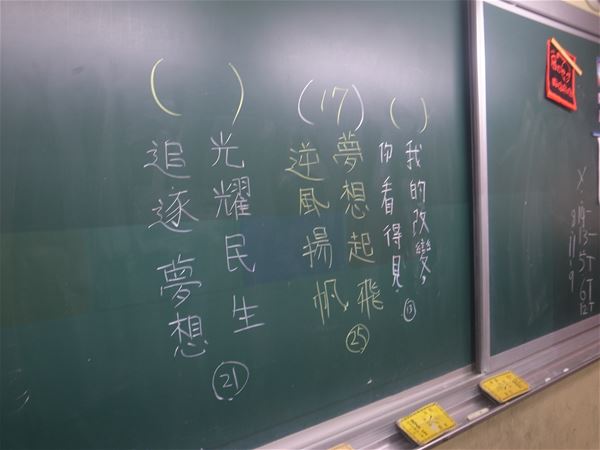 ( )
我的改變,
你看得見
⑬
(17)
夢想起飛
逆風揚帆
㉕
( )
光耀民生
追逐夢想
㉑